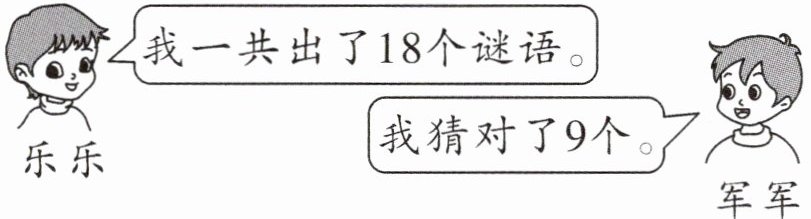 我一共出了18个谜语。
我猜对了9个。
乐乐
军军